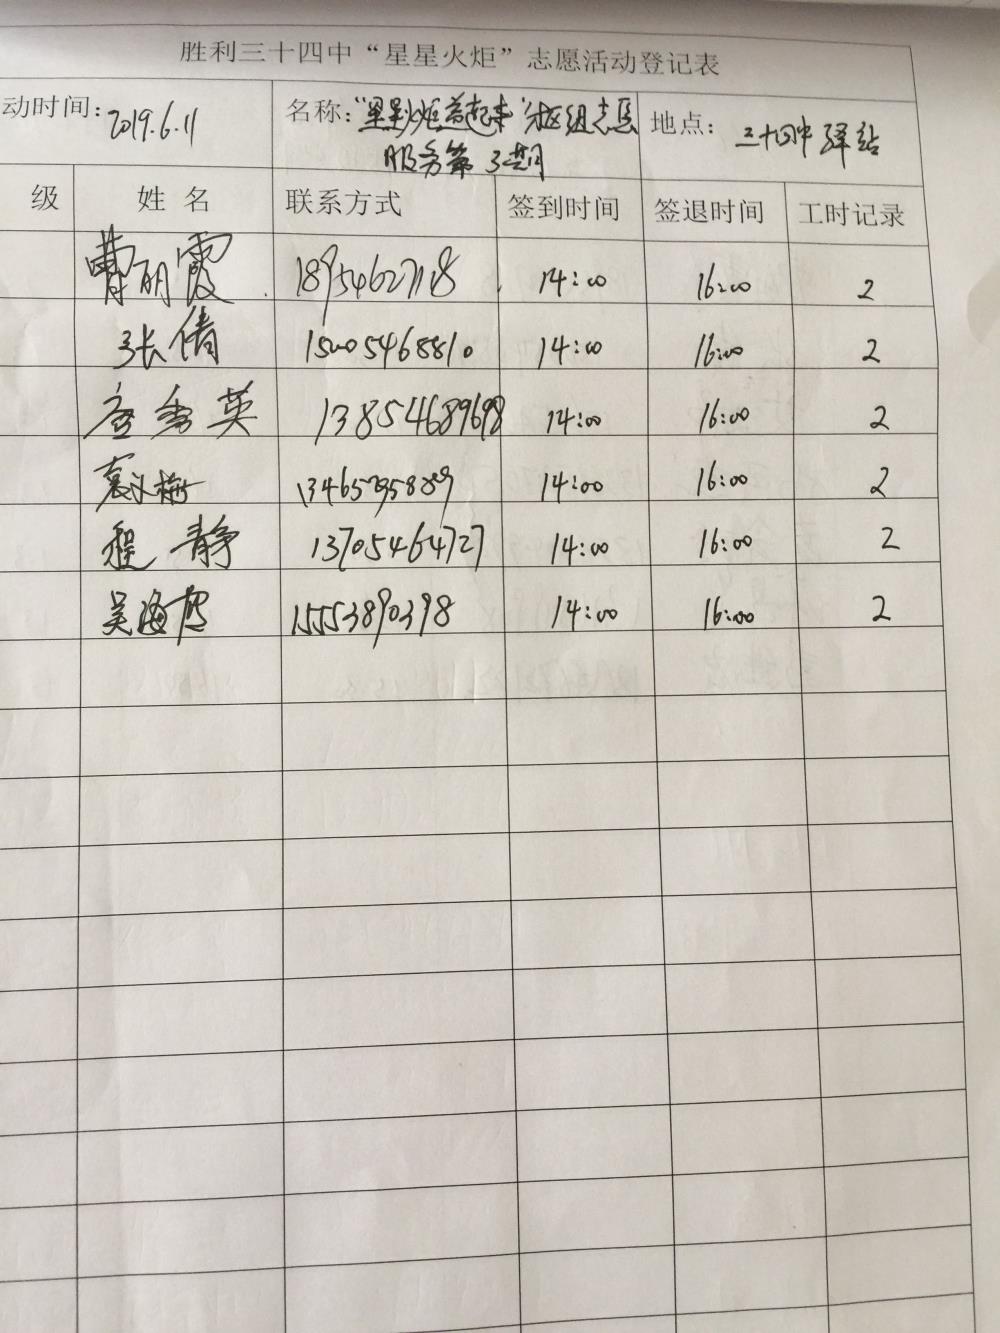 胜利三十四中“星星火炬”志愿活动登记表
动时间：2019.6.11 名称：“星星火炬益起来” 志愿 地点：三十四中驿站
服务第3期
级 姓名 联系方式 签到时间 签退时间 工时记录
曹丽霞 14:00 16:00 2
张倩 15005468810 14:00 16:00 2
秀英 13854689698 14:00 16:00 2
袁小梅 14:00 16:00 2
程静 13705464727 14:00 16:00 2
吴海 15553890398 14:00 16:00 2